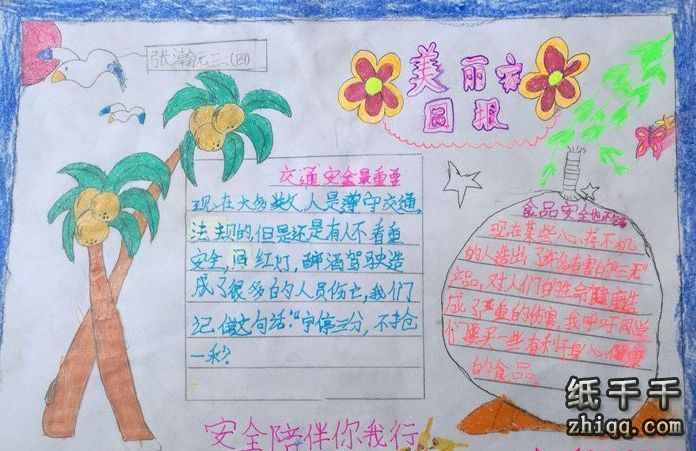 张瀚元三.(四)
美丽家
园报
交通安全最重要
现在大多数人是遵守交通
法规的,但是还是有人不看重
安全,闯红灯,醉酒驾驶造
成了很多的人员伤亡,我们
记住这句话:"宁停三分,不抢
一秒?
食品安全也
现在某些心存不轨
的人造出了许多有害的"三无"
食品,对人们的生命健康造
成了严重的伤害,我呼吁同学
们要买一些有利于身心健康
的食品。
安全陪伴你我行
纸千千
zhiqq.com